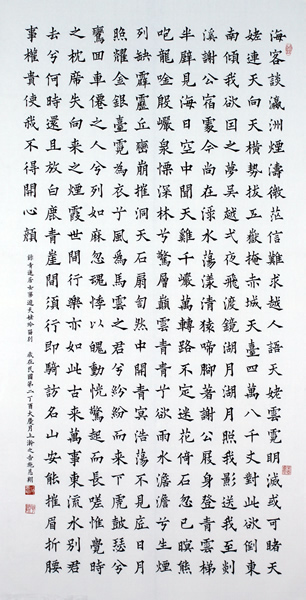 海客談瀛洲煙濤微茫信難求越人語天姥雲霓明滅或可睹天
姥連天向天橫勢拔五嶽掩赤城天臺四萬八千丈對此欲倒東
南傾我欲因之夢吳越弌夜飛渡鏡湖月湖月照我影送我至剡
溪謝公宿處今尚在淥水蕩漾清猿啼腳著謝公屐身登青雲梯
半壁見海日空中聞天雞千巖萬轉路不定迷花倚石忽已暝熊
咆龍吟殷巖泉慄深林兮驚層巔雲青青兮欲雨水澹澹兮生煙
列缺霹靂丘巒崩摧洞天石扇訇然中開青冥浩蕩不見底日月
照耀金銀臺霓為衣兮風為馬雲之君兮紛紛而來下虎鼓瑟兮
鸞回車僊之人兮列如麻忽魂悸以魄動怳驚起而長嗟惟覺時
之枕席失向來之煙霞世間行樂亦如此古來萬事東流水別君
去兮何時還且放白鹿青崖間須行即騎訪名山安能摧眉折腰
事權貴使我不得開心顏
青蓮居士夢遊天姥吟留別 歲在民國第二丁酉大慶月上澣之吉